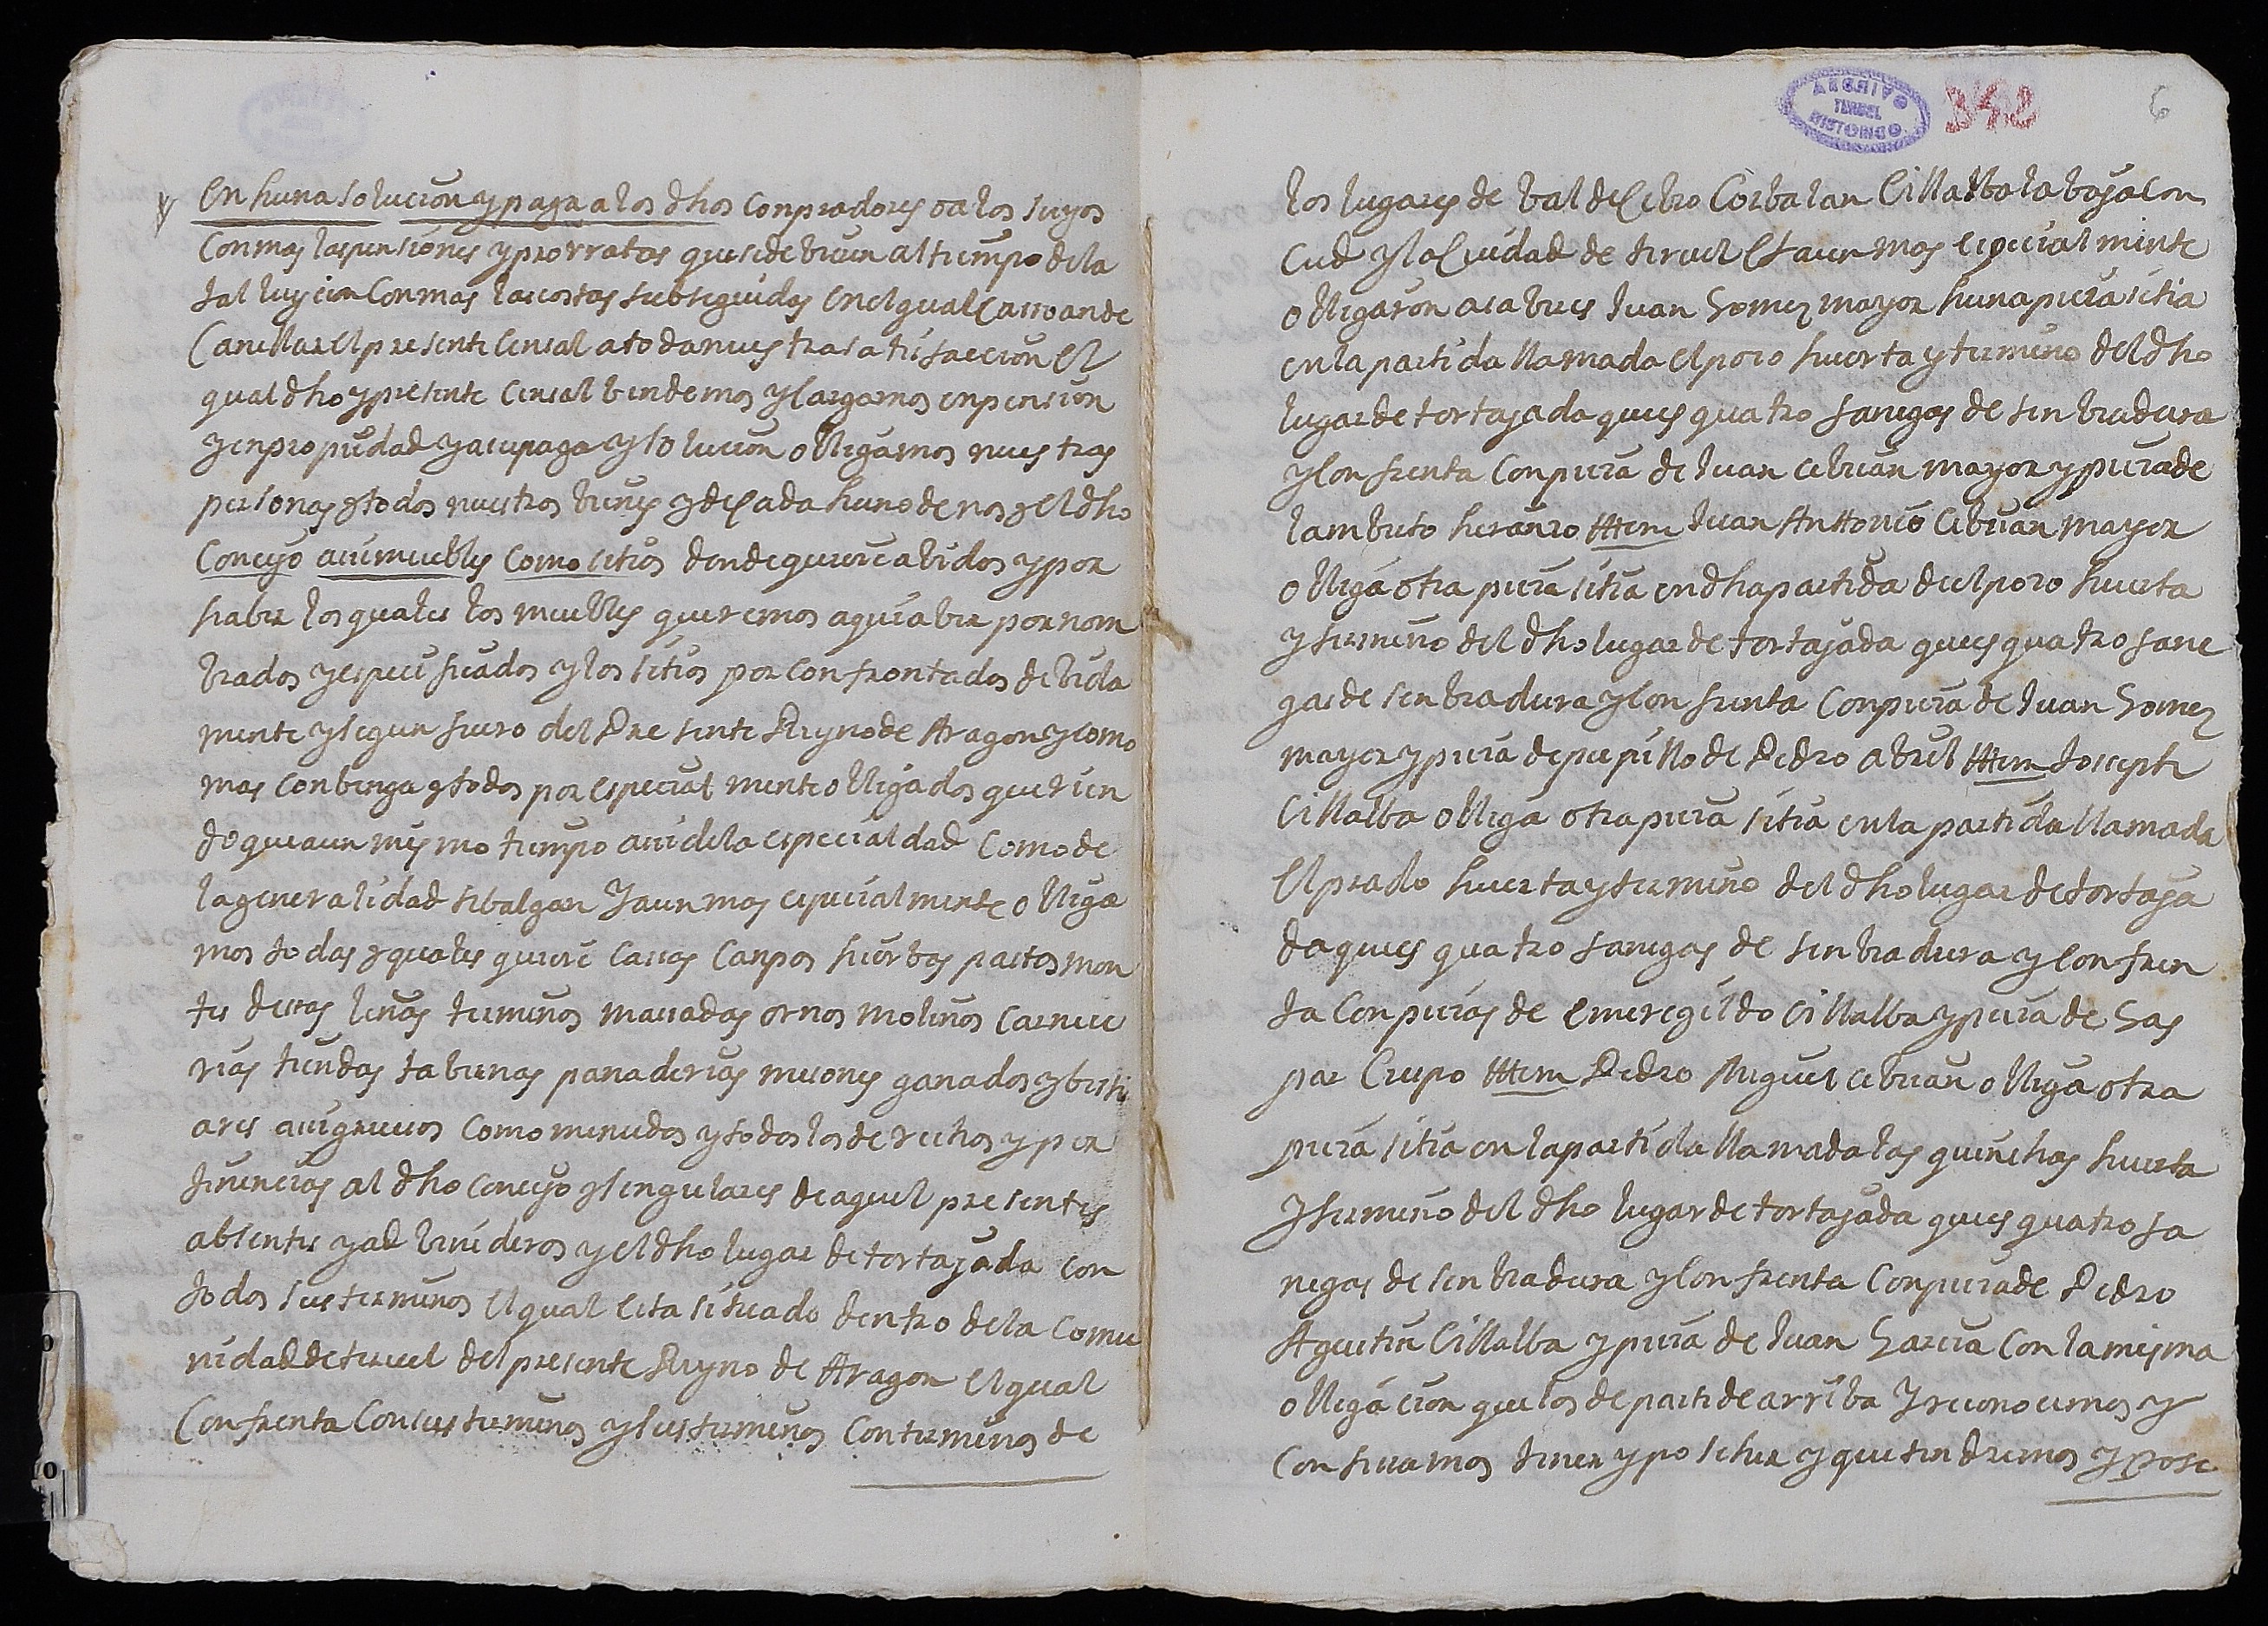 En huna solucion y paga a los dhos conpradores o a los suyos
con mas las pensiones y prorratas que se debieren al tiempo de la
tal luycion con mas las costas subseguidas en el qual caso ande
cancellar el presente censal a toda nuestra satisfaccion El
qual dho y presente censal bendemos y cargamos en pension
y en propiedad y a cupaga y solucion obligamos nuestras
personas y todos nuestros bienes y de cada huno de nos y el dho
concejo asi muebles como sitios dondequiere abidos y por
haber los quales los muebles queremos aqui aber por nom
brados y especificados y los sitios por confrontados debida
mente y segun fuero del Presente Reyno de Aragon y como
mas conbenga y todos por especialmente obligados querien
do que a un mismo tiempo asi de la especialdad como de
la generalidad se balgan y aun mas especialmente obliga
mos todas y quales quiere casas canpos hierbas pastos mon
tes desas leñas terminos masadas ornos molinos carnice
rias tiendas tabernas panaderias mesones ganados y besti
ares asi gruesos como menudos y todos los derechos y per
tinencias al dho concejo y singulares de aquel presentes
absentes y ad benideros y el dho lugar de tortajada con
todos sus terminos el qual esta situado dentro de la comu
nidad de teruel del presente Reyno de Aragon el qual
confrenta con sus terminos y sus terminos con terminos de
ARCHIVO
TERUEL
HISTORICO
342
6
los lugares de baldecebro Corbalan Cillalba la baja Con
cud y la Ciudad de teruel Et aun mas especialmente
obligaron a saber es Juan Gomez mayor huna pieza sitia
en la partida llamada el pozo huerta y termino del dho
lugar de tortajada que es quatro fanegas de senbradura
y confrenta con pieza de Juan cebrian mayor y pieza de
lamberto heranzo Ittem Juan Anttonio Cebrian mayor
obliga otra pieza sitia en dha partida de el pozo huerta
y termino del dho lugar de tortajada que es quatro fane
gas de senbradura y confrenta con pieza de Juan Gomez
mayor y pieza de pupillo de Pedro abril Ittem Joseph
Cillalba obliga otra pieza sitia en la partida llamada
El prado huerta y termino del dho lugar de tortaja
da que es quatro fanegas de senbradura y confren
ta con piezas de emeregildo Cillalba y pieza de Gas
par Crespo Ittem Pedro Miguel cebrian obliga otra
pieza sitia en la partida llamada las quinchas huerta
y termino del dho lugar de tortajada que es quatro fa
negas de senbradura y confrenta con pieza de Pedro
Agustin Cillalba y pieza de Juan Garcia con la misma
obligacion que los de parte de arriba y reconocemos y
confesamos tener y poseher y que tendremos y pose